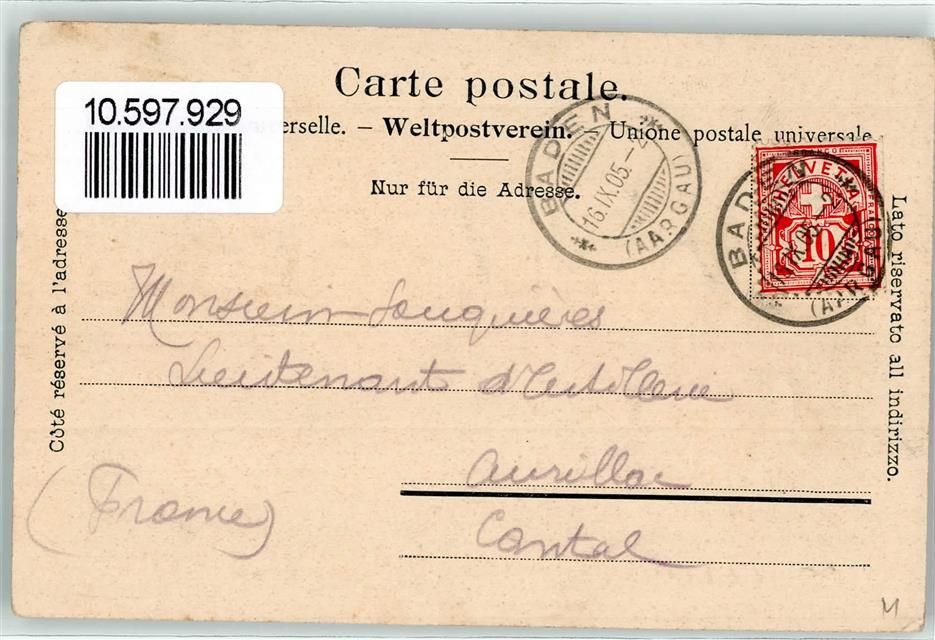 Carte postale.
10.597.929
erselle. – Weltpostverein. – Unione postale universale
Nur für die Adresse.
BADEN
16.IX.05.–2
(AARGAU)
HELVETIA
FRANCO
10
BADEN
IX.05.–2
(AARGAU)
Côté réservé à l'adresse
Lato riservato all indirizzo.
Monsieur
Lieutenant d'Artillerie
Aurillac
Cantal
(France)
M